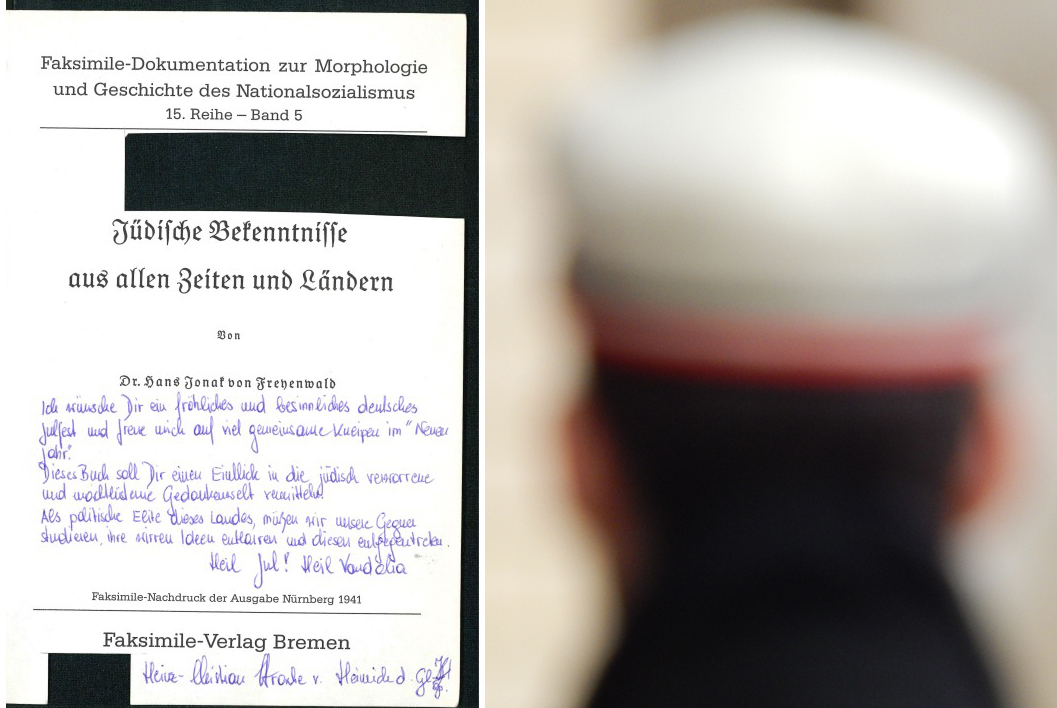 Faksimile-Dokumentation zur Morphologie
und Geschichte des Nationalsozialismus
15. Reihe – Band 5
Jüdische Bekenntnisse
aus allen Zeiten und Ländern
Von
Dr. Hans Jonak von Freyenwald
Ich wünsche Dir ein fröhliches und besinnliches deutsches
Julfest und freue mich auf viel gemeinsame Kneipen im "Neuen
Jahr".
Dieses Buch soll Dir einen Einblick in die jüdisch verworrene
und machtlüsterne Gedankenwelt vermitteln!
Als politische Elite dieses Landes, müßen wir unsere Gegner
studieren, ihre wirren Ideen entlarven und diesen entgegentreten.
Heil Jul! Heil Vandalia
Faksimile-Nachdruck der Ausgabe Nürnberg 1941
Faksimile-Verlag Bremen
Heinz-Christian Strache v.